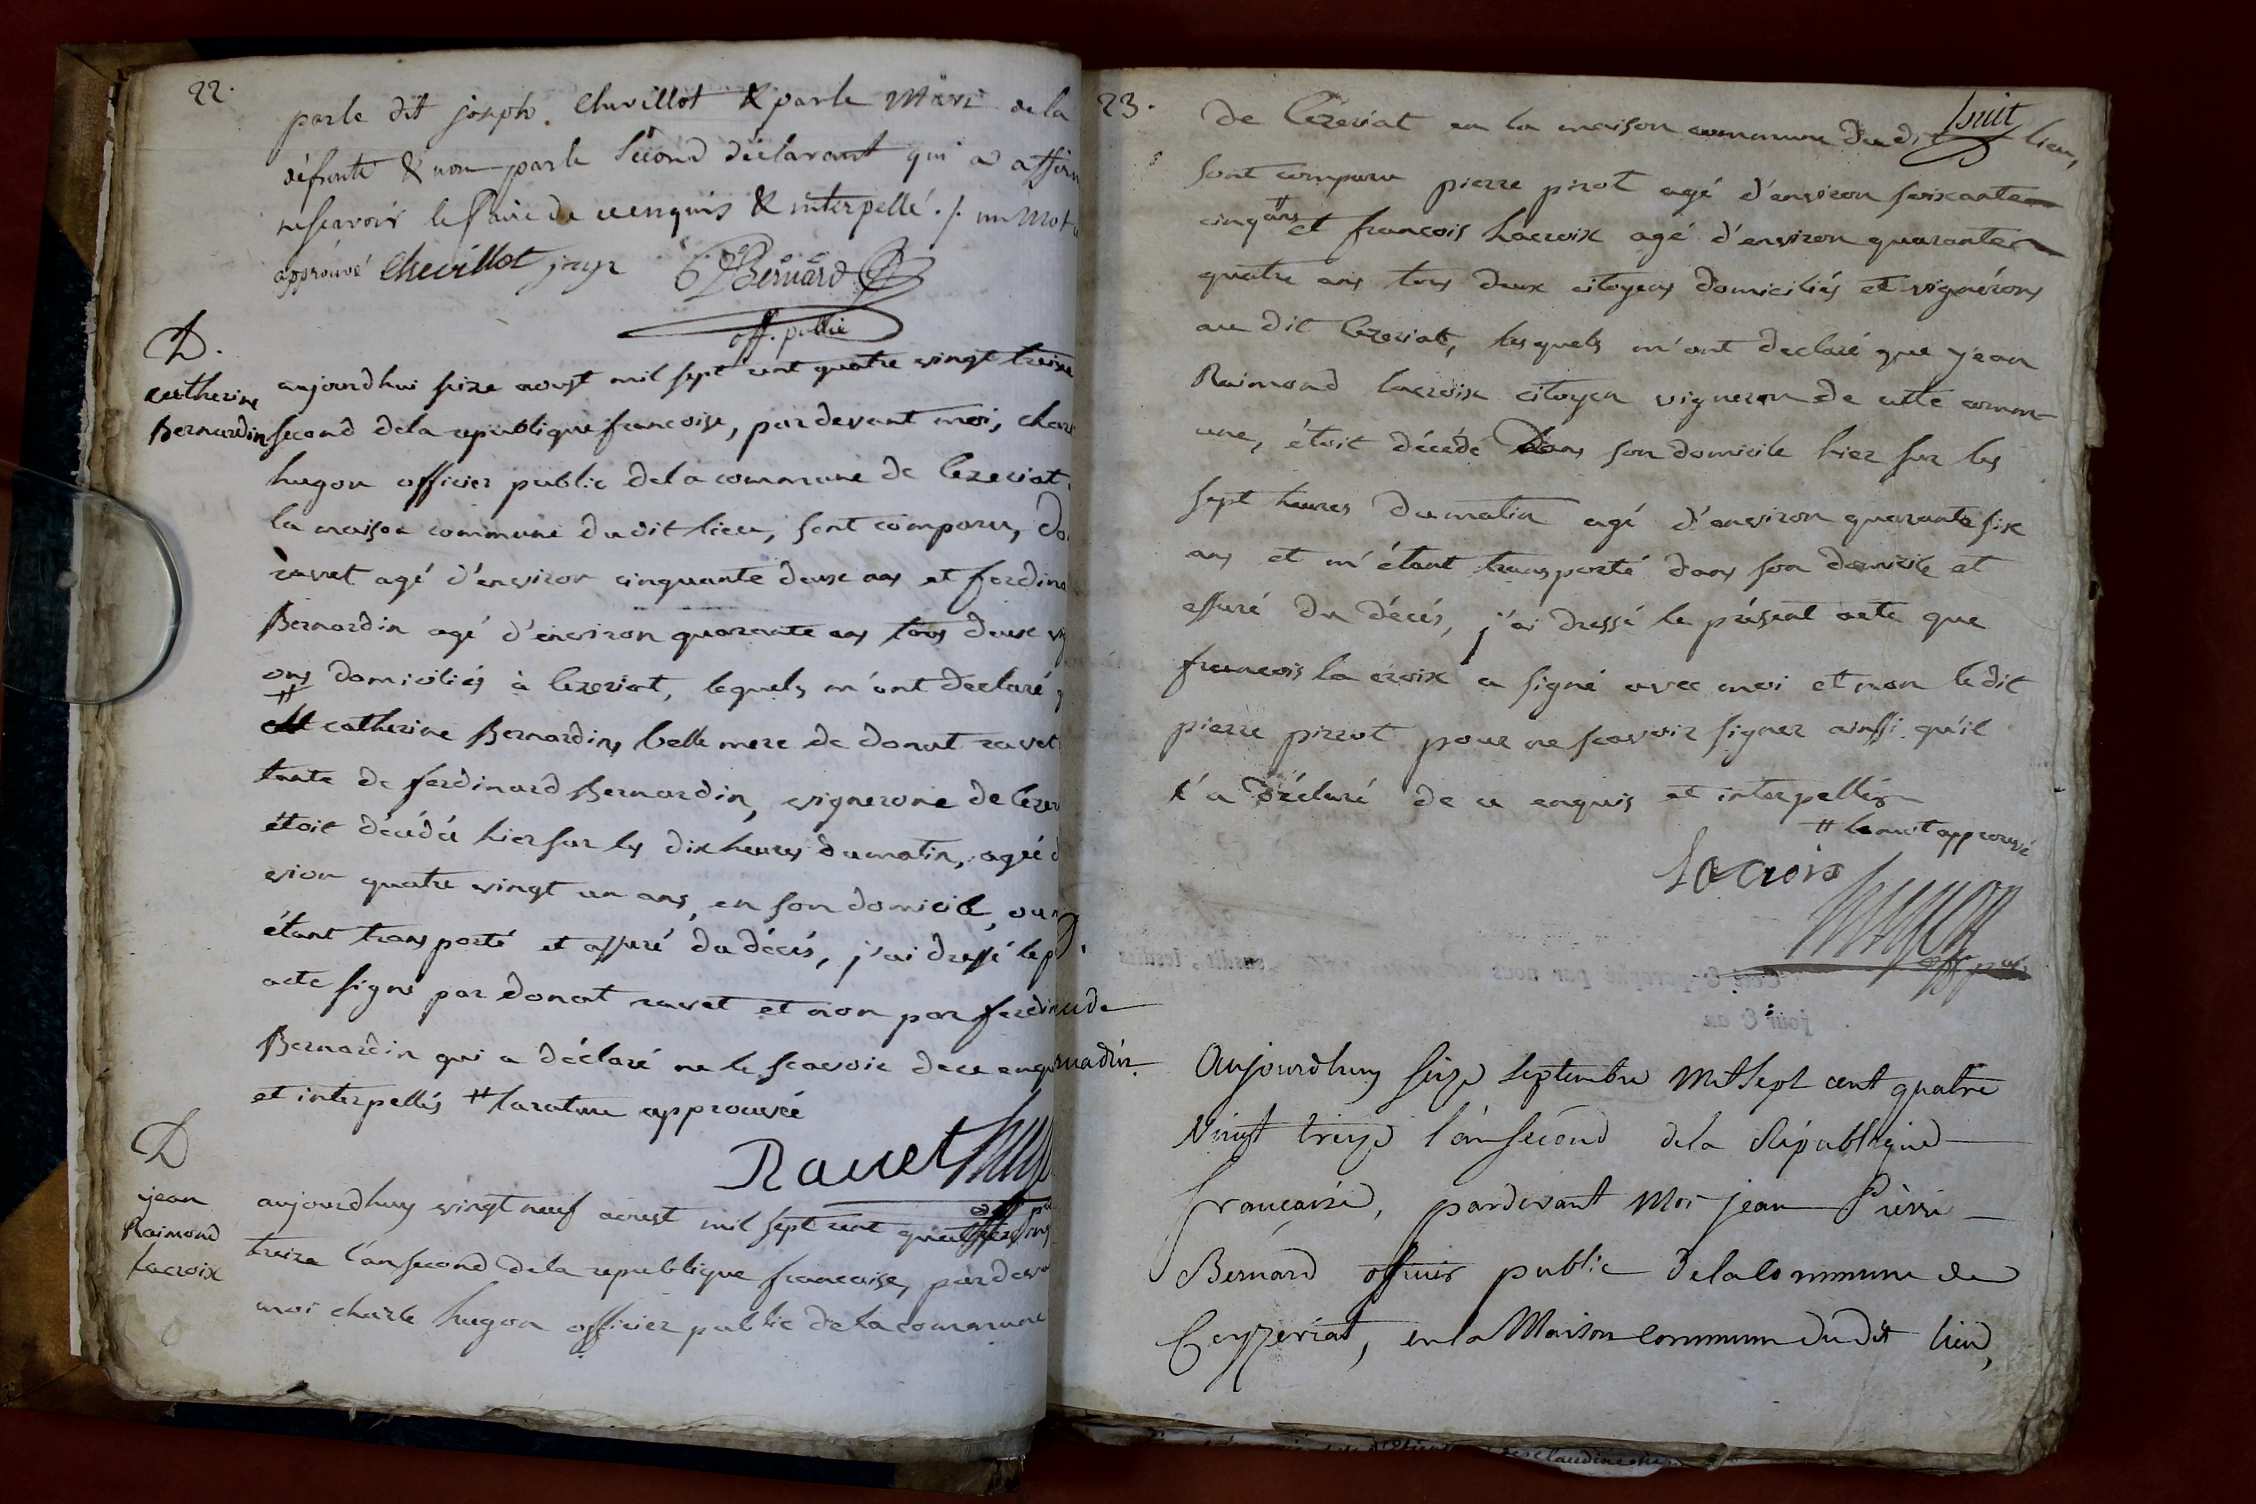 22.
parle dit joseph. Chevillot & parle Mari de la
défunte & non parle Second déclarant qui a
ne scavoir le faire de ce enquis & interpellé ./. un Mot
approuvé Chevillot JPBernard
off. public
D.
catherine
Bernardin
aujourdhui seize aoust mil sept cent quatre vingt treize
second dela republique francoise, pardevant moi,
hugon officier public dela commune de Cezeriat
la maison commune dudit lieu, sont comparu,
ravet agé d'environ cinquante deux ans et
Bernardin agé d'environ quarante ans tous deux
ons domiciliés à Cezeriat, lequels m'ont declaré
catherine Bernardin, belle mere de donat ravet
tante de ferdinard Bernardin, vignerone de
étoit décédée hier sur les dix heures dumatin, agée
viron quatre vingt un ans, en son domicile,
étant transporté et assuré du décés, j'ai dressé le
acte signé par donat ravet et non par
Bernardin qui a déclaré ne le scavoir dece
et interpellés # la rature approuvée
Ravet
D
jean
Raimond
Lacroix
aujourdhuy vingt neuf aoust mil sept cent
treize l'an second dela republique francoise,
moi charle hugon officier public dela commune
23.
huit
De Cézeriat en la maison commune dudit lieu,
sont comparu pierre pirot agé d'environ soixante
cinq ans et francois Lacroix agé d'environ quarante
quatre ans tous deux citoyens domiciliés et vignérons
au dit Cezeriat, lesquels m'ont declaré que jean
Raimond Lacroix citoyen vigneron de cette comm-
une, étoit décédé Dans son domicile hier sur les
sept heures du matin agé d'environ quarante six
ans et m'étant transporté dans son domicile et
assuré du décés, j'ai dressé le présent acte que
francois la croix a signé avec moi et non le dit
pierre pirrot pour ne scavoir signer ainssi qu'il
l'a déclaré de ce enquis et interpellés
# le mot approuvé
Lacroix
hugon
off. p.
Aujourdhuy seize Septembre Mil Sept cent quatre
Vingt treize l'an second dela République
française, pardevant Moi jean Pierre
Bernard officier public delaCommune de
Ceyzeriat, en la Maison Commune du dit lieu,